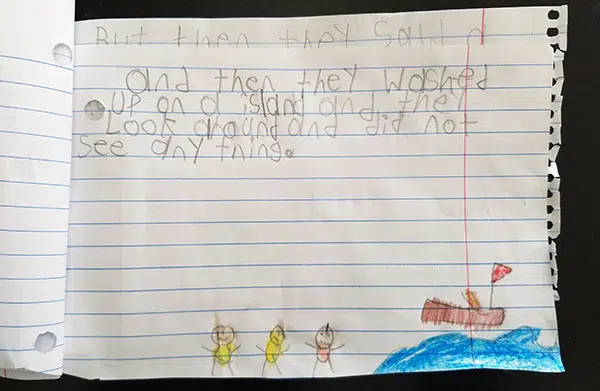 But then they saw a
and then they washed
UP on a island and they
Look around and did not
see any thing.